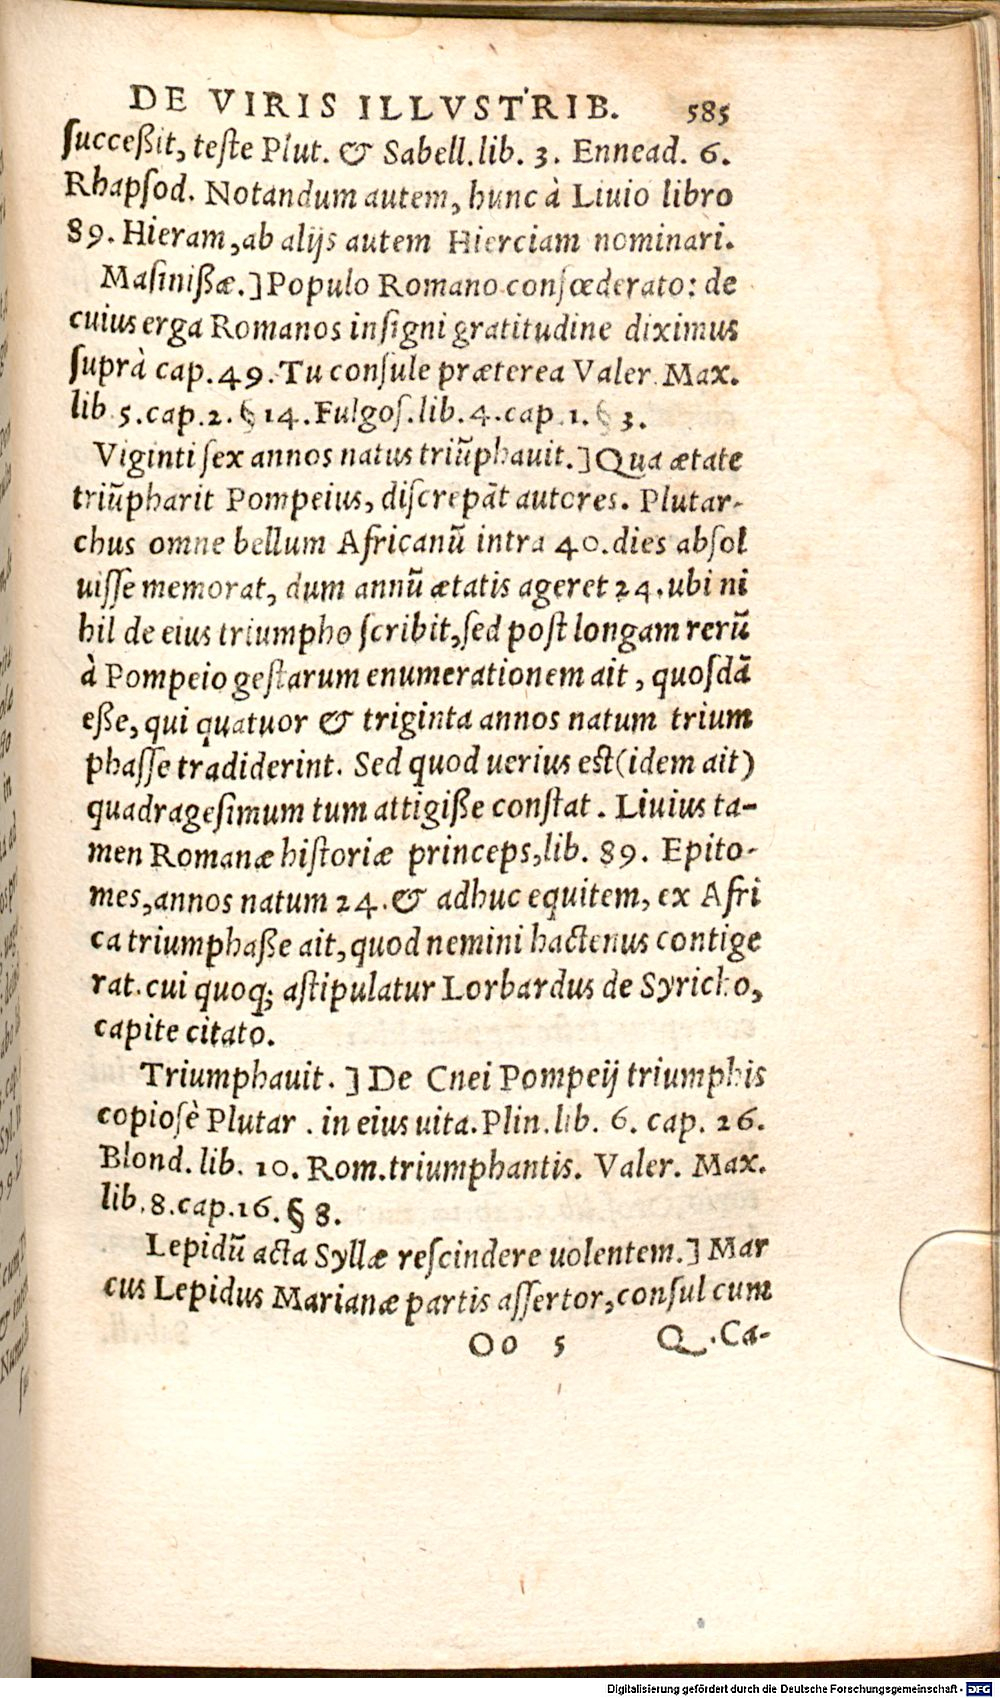 DE VIRIS ILLVSTRIB. 585
ſucceßit, teſte Plut. & Sabell. lib. 3. Ennead. 6.
Rhapſod. Notandum autem, hunc à Liuio libro
89. Hieram, ab alijs autem Hierciam nominari.
Maſinißæ.] Populo Romano conſœderato: de
cuius erga Romanos inſigni gratitudine diximus
ſuprà cap. 49. Tu conſule præterea Valer. Max.
lib. 5. cap. 2. § 14. Fulgoſ. lib. 4. cap. 1. § 3.
Viginti ſex annos natus triũphauit.] Qua ætate
triũpharit Pompeius, diſcrepãt autores. Plutar-
chus omne bellum Africanũ intra 40. dies abſol
uiſſe memorat, dum annũ ætatis ageret 24. ubi ni
hil de eius triumpho ſcribit, ſed poſt longam rerũ
à Pompeio geſtarum enumerationem ait, quoſdã
eße, qui quatuor & triginta annos natum trium
phaſſe tradiderint. Sed quod uerius est (idem ait)
quadrageſimum tum attigiße conſtat. Liuius ta-
men Romanæ hiſtoriæ princeps, lib. 89. Epito-
mes, annos natum 24. & adhuc equitem, ex Afri
ca triumphaße ait, quod nemini hactenus contige
rat. cui quoq; aſtipulatur Lorbardus de Syricho,
capite citato.
Triumphauit.] De Cnei Pompeij triumphis
copioſè Plutar. in eius uita. Plin. lib. 6. cap. 26.
Blond. lib. 10. Rom. triumphantis. Valer. Max.
lib. 8. cap. 16. § 8.
Lepidũ acta Syllæ reſcindere uolentem.] Mar
cus Lepidus Marianæ partis aſſertor, conſul cum
Oo 5 Q. Ca-
Digitalisierung gefördert durch die Deutsche Forschungsgemeinschaft - DFG